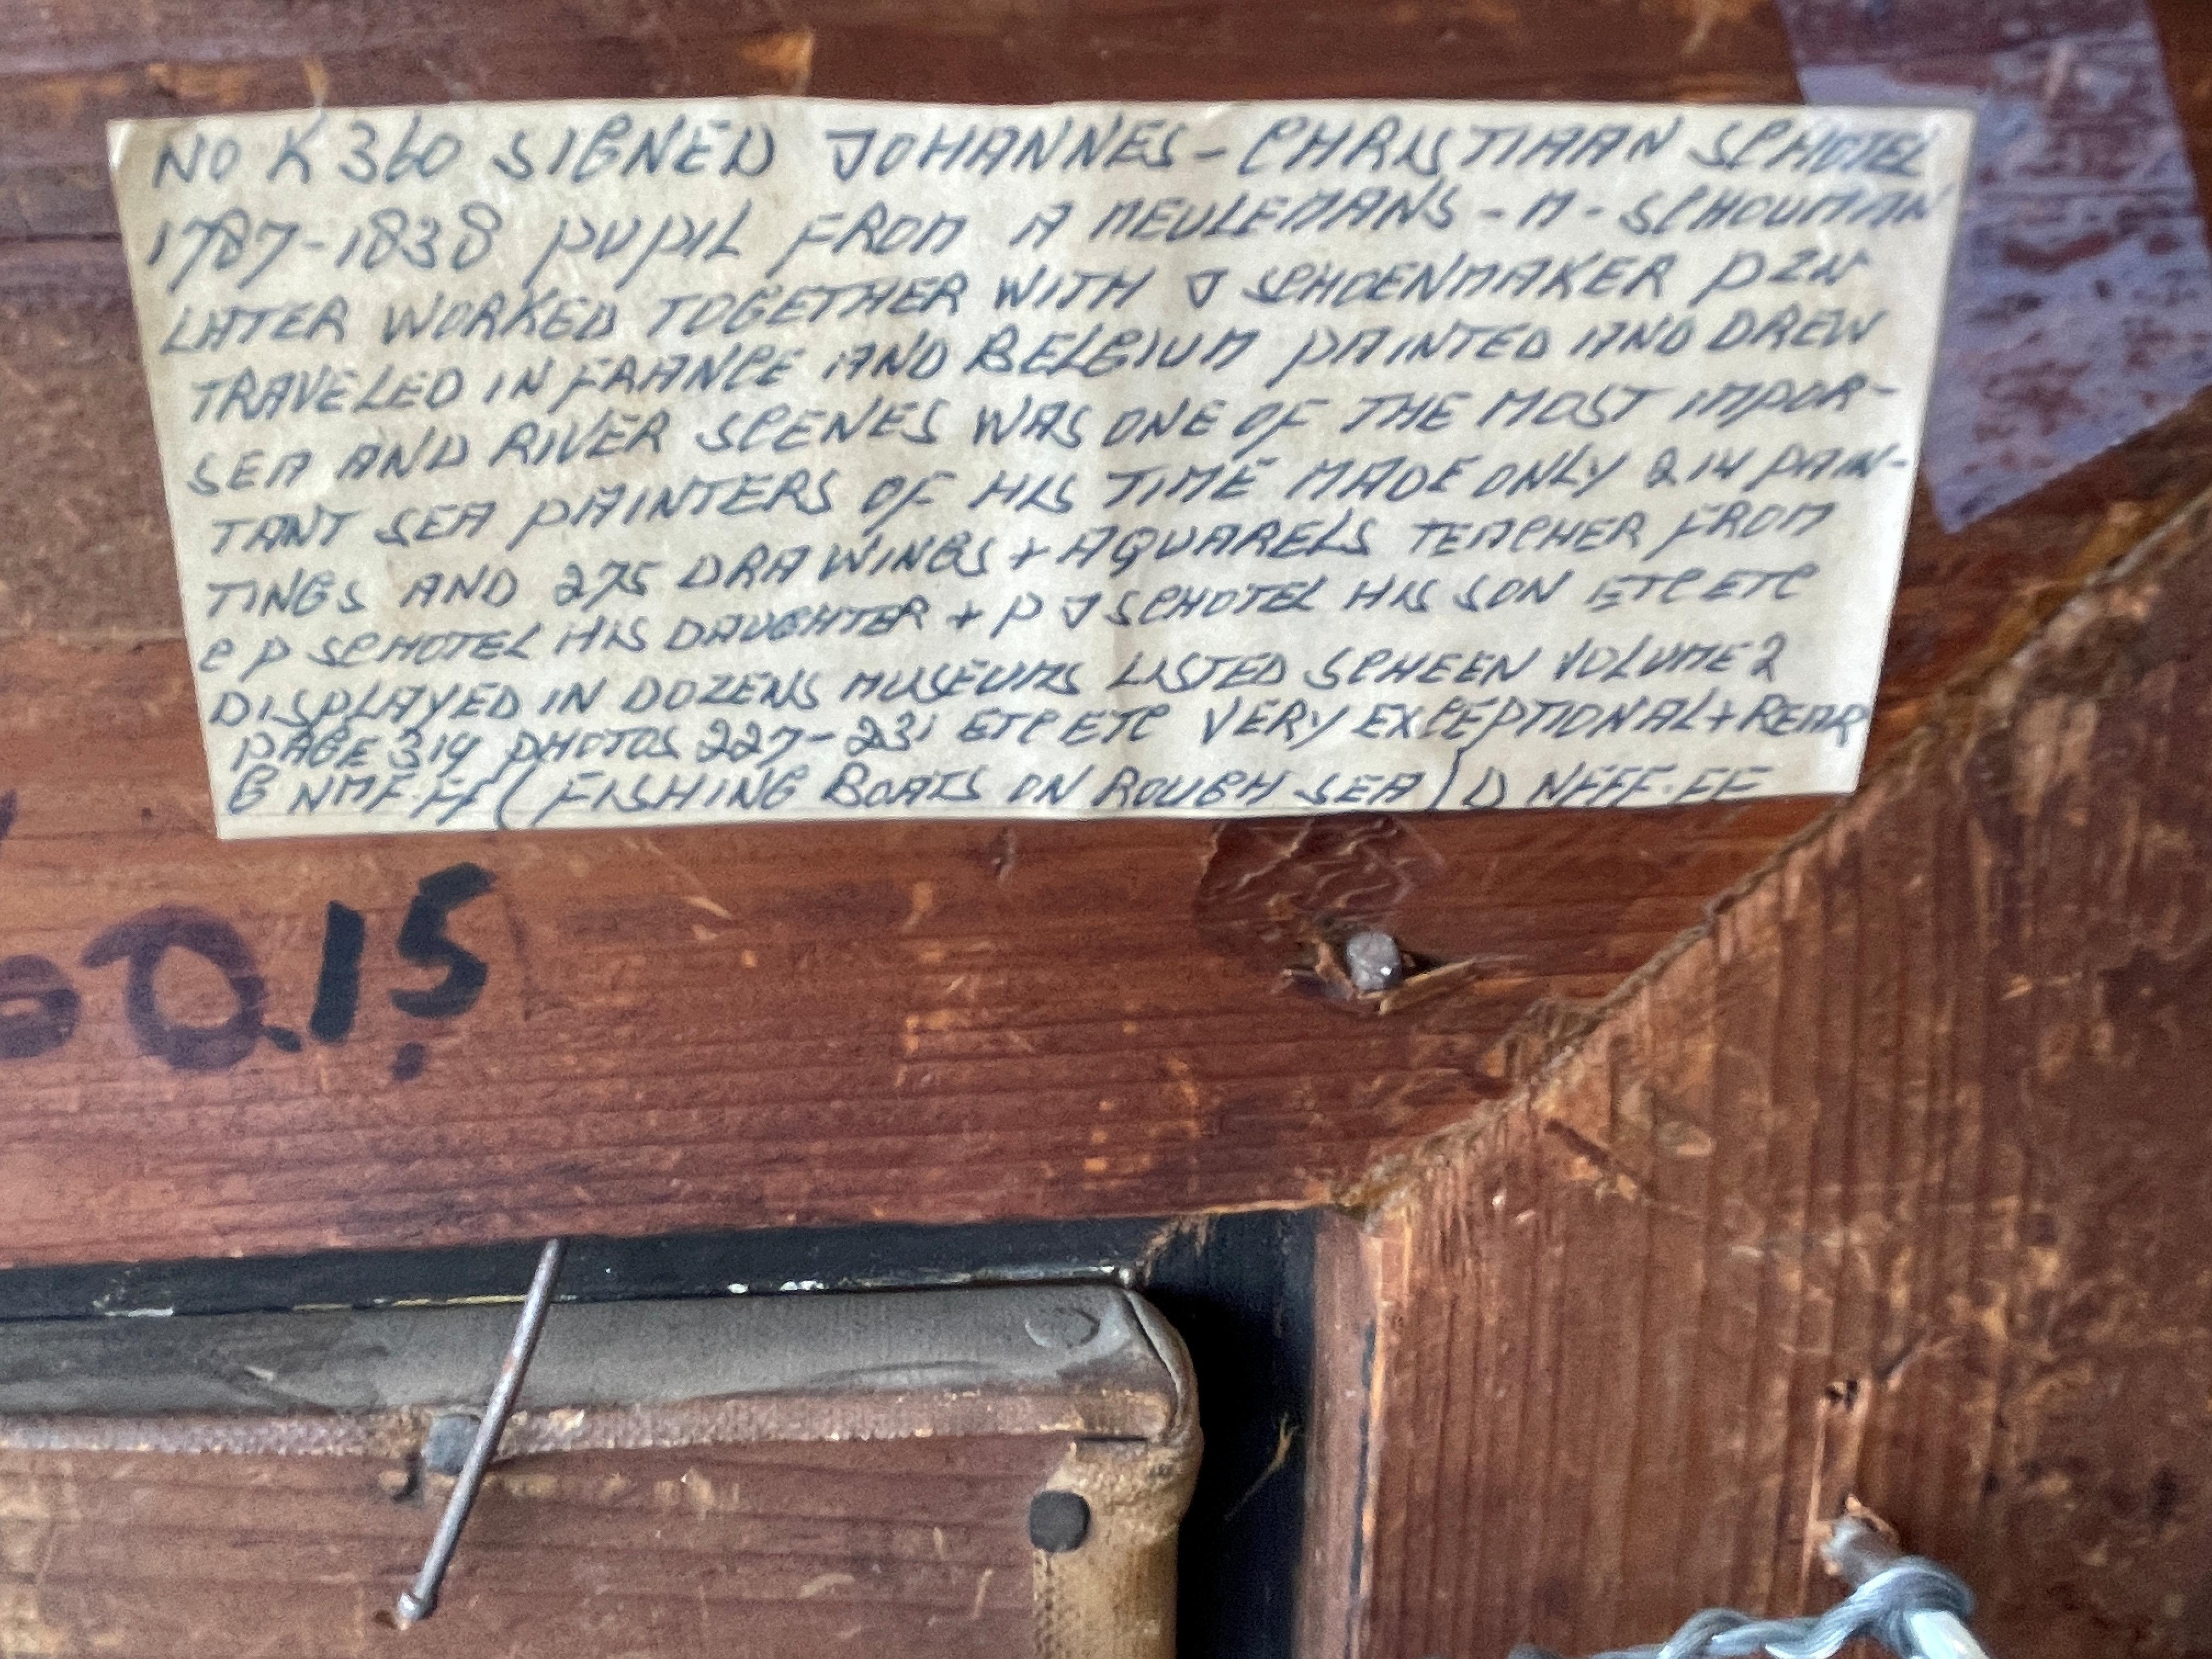 NO K 360 SIGNED JOHANNES - CHRISTIAAN SCHOTEL
1787-1838 PUPIL FROM A MEULEMANS - M - SCHOUMAN
LATER WORKED TOGETHER WITH J SCHOENMAKER PZN
TRAVELED IN FRANCE AND BELGIUM PAINTED AND DREW
SEA AND RIVER SCENES WAS ONE OF THE MOST IMPOR-
TANT SEA PAINTERS OF HIS TIME MADE ONLY 214 PAIN-
TINGS AND 275 DRAWINGS + AQUARELS TEACHER FROM
C P SCHOTEL HIS DAUGHTER + P J SCHOTEL HIS SON ETC ETC
DISPLAYED IN DOZENS MUSEUMS LISTED SCHEEN VOLUME 2
PAGE 319 PHOTOS 227-231 ETC ETC VERY EXCEPTIONAL + REAR
G NMF.FF (FISHING BOATS ON ROUGH SEA) D NFFF.FF
0.15